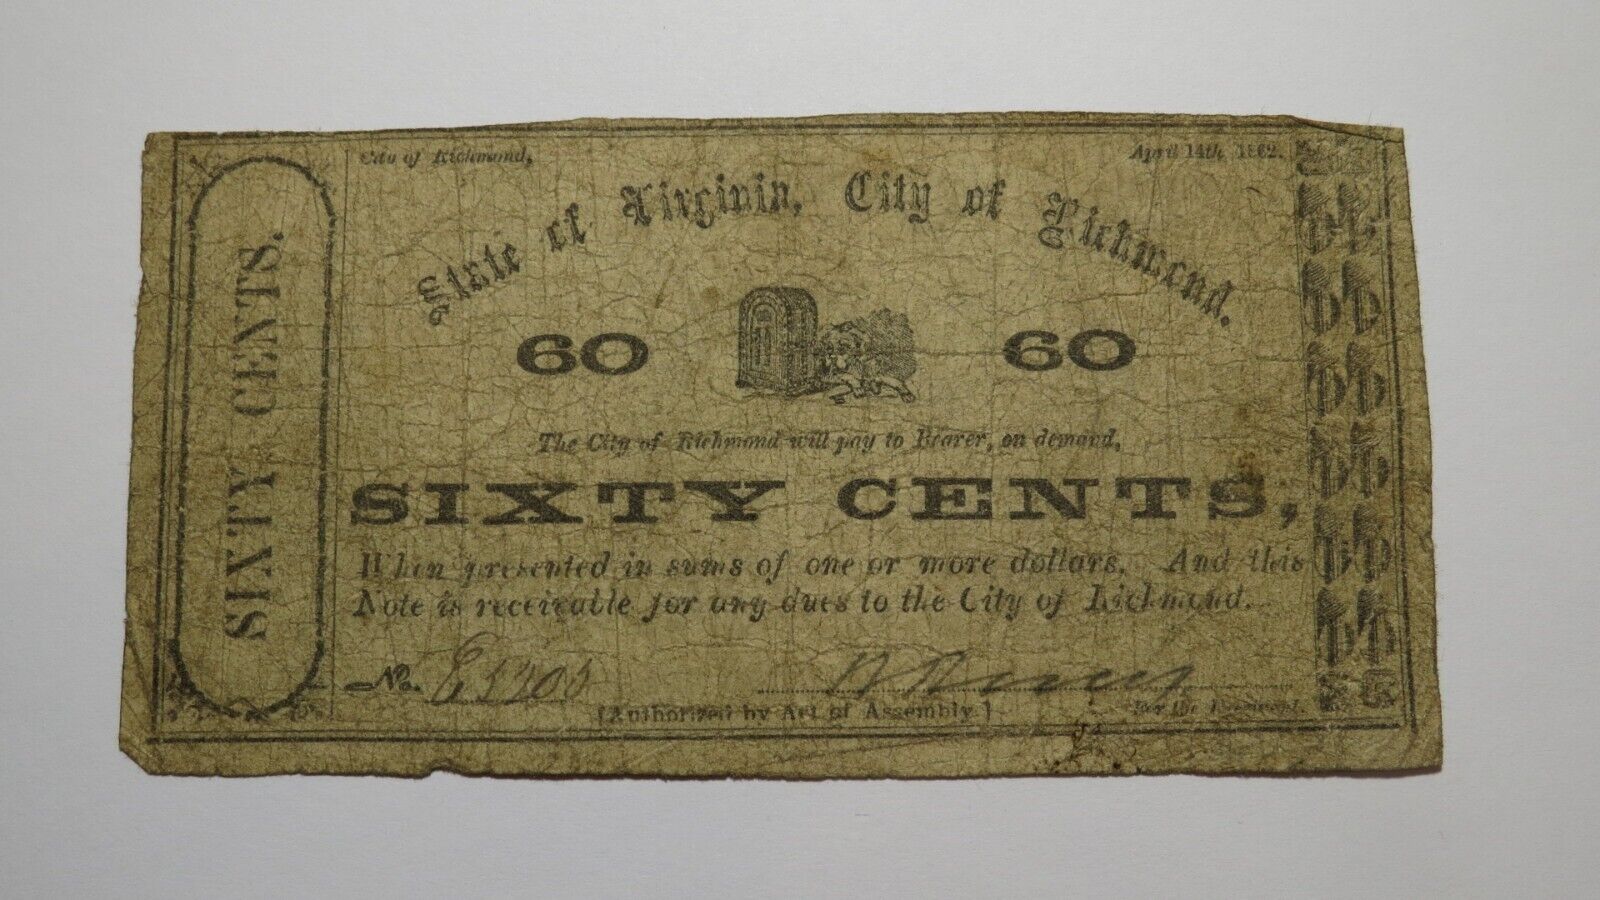 SIXTY CENTS.
City of Richmond,
April 14th, 1862.
State of Virginia, City of Richmond.
60 60
The City of Richmond will pay to Bearer, on demand,
SIXTY CENTS,
When presented in sums of one or more dollars. And this
Note is receivable for any dues to the City of Richmond.
No.
[Authorized by Act of Assembly.]
For the President.